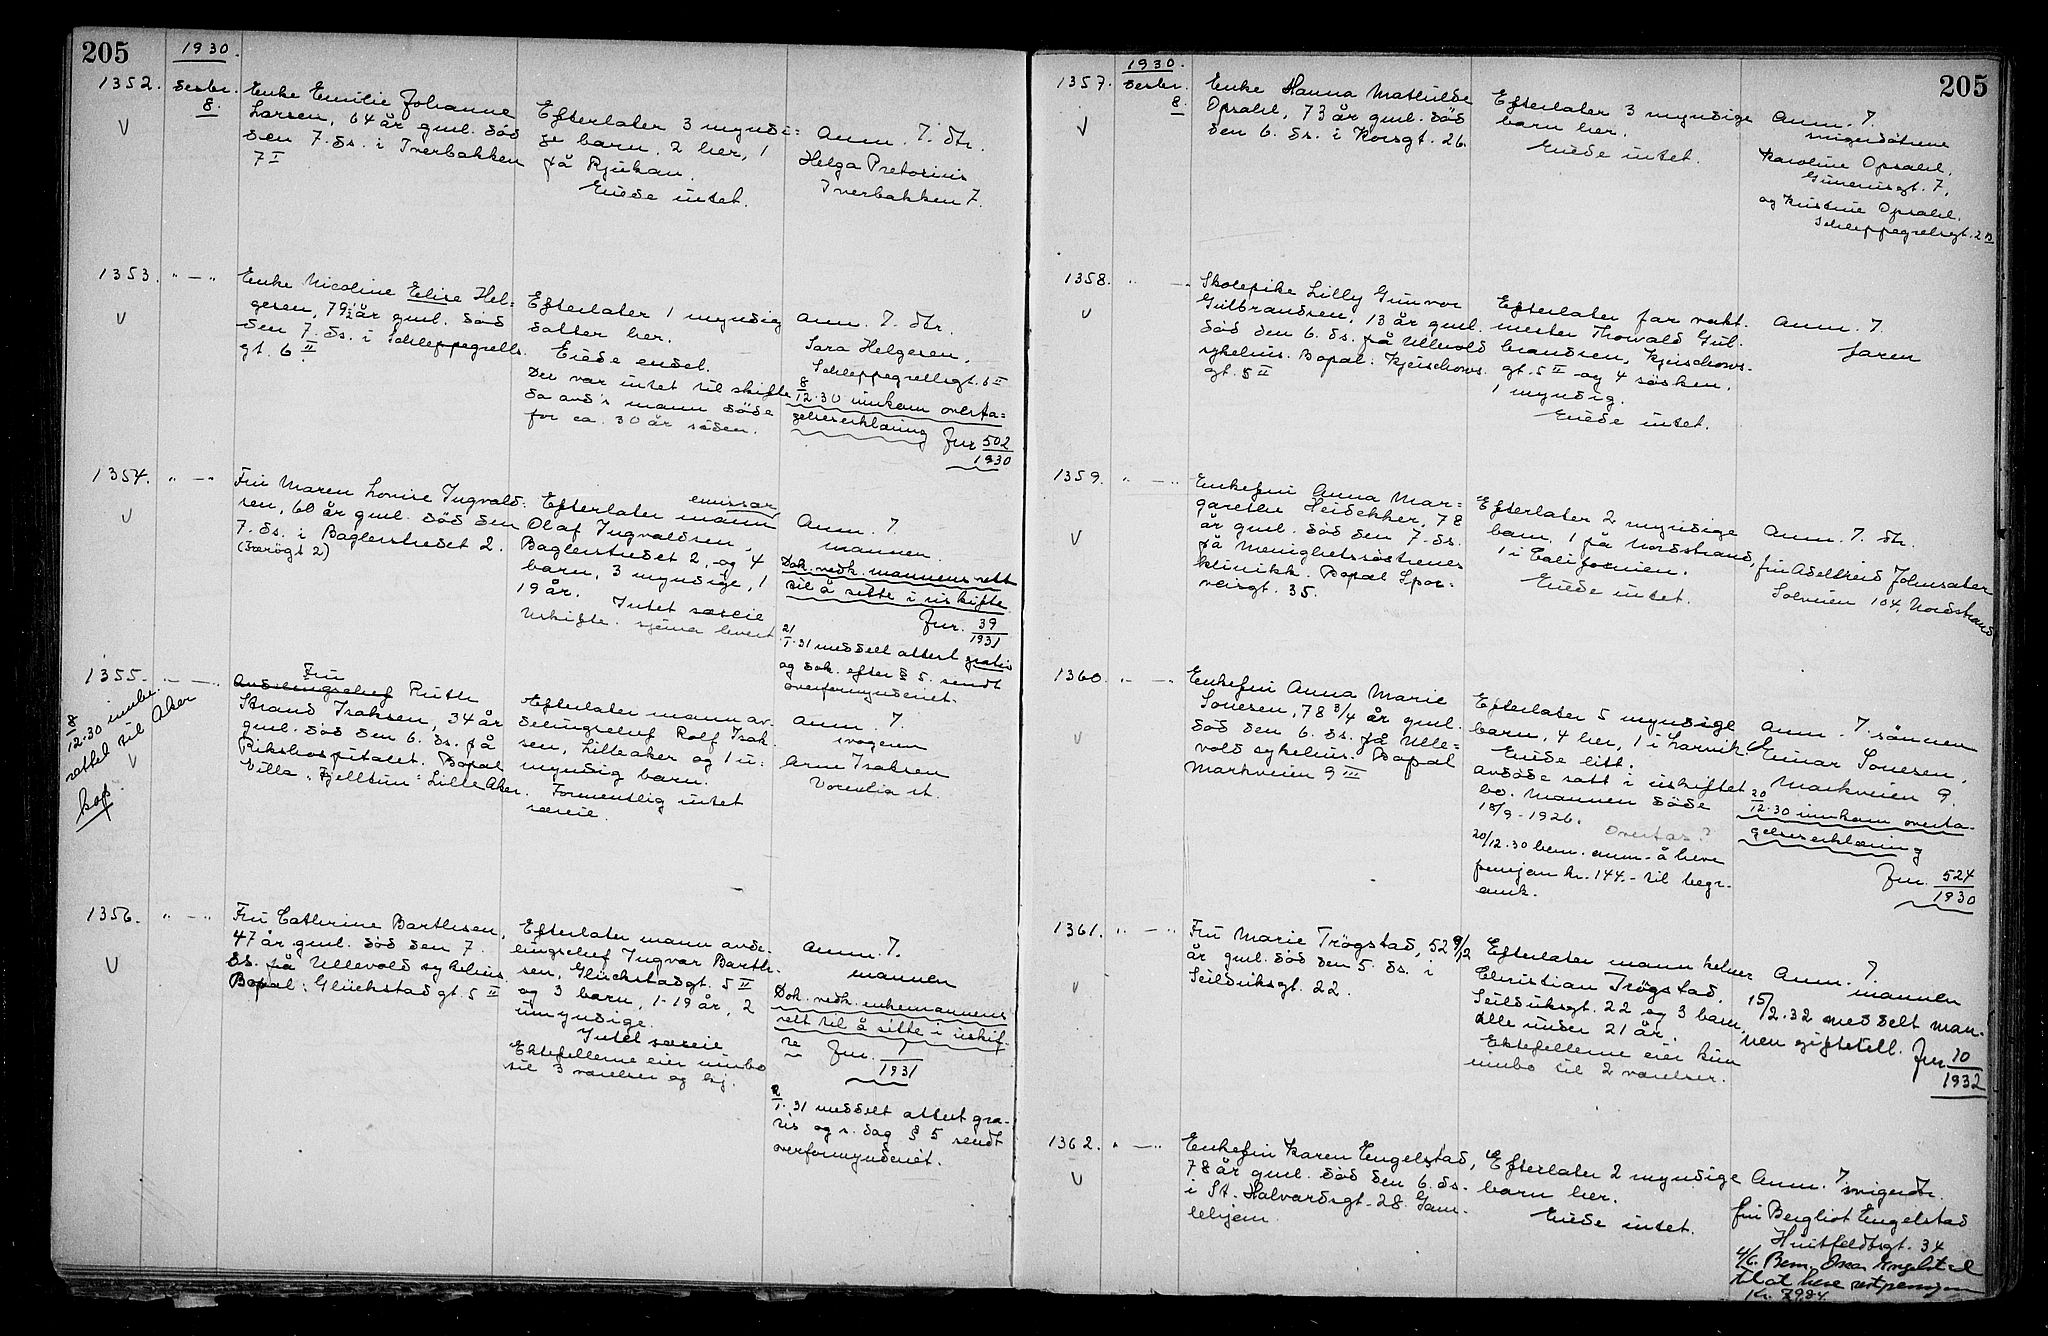 205
1930.
1352.
Desbr.
8.
Enke Emilie Johanne
Larsen, 64 år gml. död
den 7. ds. i Iverbakken
7 I
Efterlater 3 myndi=
ge barn. 2 her, 1
på Rjukan.
Eiede intet.
Anm. 7. dtr.
Helga Pretorius
Iverbakken 7.
1353.
" — "
Enke Nicoline Elise Hel=
gesen, 79½ år gml. död
den 7. ds. i Schleppegrells
gt. 6 II
Efterlater 1 myndig
datter her.
Eiede endel.
Der var intet til skifte
da avd's mann döde
for ca. 30 år siden.
Anm. 7. dtr.
Sara Helgesen,
Schleppegrellsgt. 6 II
8/12.30 innkom overta=
gelseserklæring
Jnr 502/1930
1354.
" — "
Fru Maren Lovise Ingvald=
sen, 60 år gml. död den
7. ds. i Baglerstredet 2.
Efterlater emissær
mann
Olaf Ingvaldsen,
Baglerstredet 2, og 4
barn, 3 myndige, 1
19 år. Intet særeie
Uskifte. skjema levert
Anm. 7.
mannen.
Dok. vedk. mannens rett
til å sitte i uskifte
Jnr. 39/1931
21/1.31 meddelt attest gratis
og dok. efter § 5. sendt
overformynderiet.
1355.
" — "
8/12.30 innber.
rettet til Aker
kop.
Fru
Avdelingschef Ruth
Strand Isaksen, 34 år
gml. död den 6. ds. på
Rikshospitalet. Bopal
Villa "Fjelltun" Lilleaker.
Efterlater mann av=
delingschef Rolf Isak=
sen, Lilleaker og 1 u=
myndig barn.
Formentlig intet
særeie.
Anm. 7.
svogeren
Arne Isaksen
1356.
" — "
Fru Cathrine Barthsen,
47 år gml. död den 7.
ds. på Ullevold sykehus.
Bopal: Glückstadgt. 5 II
Efterlater mann avde=
lingschef Ingvar Barth=
sen, Glückstadgt. 5 II
og 3 barn, 1-19 år, 2
umyndige.
Intet særeie
Ektefellerne eier innbo
til 3 værelser og kj.
Anm. 7.
mannen
Dok. vedk. enkemannens
rett til å sitte i uskif-
te Jnr. 7/1931
2/1.31 meddelt attest gra-
tis og s. dag § 5 sendt
overformynderiet.
205
1930.
1357.
Desbr.
8.
Enke Hanna Mathilde
Opsahl, 73 år gml. död
den 6. ds. i Korsgt. 26.
Efterlater 3 myndige
barn her.
Eiede intet.
Anm. 7.
svigerdötrene
Karoline Opsahl,
Grünersgt. 7.
og Kristine Opsahl,
Schleppegrellsgt. 2 B
1358.
" — "
Skolepike Lilly Gunvor
Gulbrandsen, 13 år gml.
död den 6. ds. på Ullevold
sykehus. Bopal: Kjerschows
gt. 5 II
Efterlater far vakt-
mester Thorvald Gul-
brandsen, Kjerschows-
gt. 5 II og 4 söskken,
1 myndig.
Eiede intet.
Anm. 7.
faren
1359.
" — "
Enkefru Anna Mar=
garethe Heidekker, 78
år gml. död den 7. ds.
på Menighetssöstrenes
klinikk. Bopal Spor-
veisgt. 35.
Efterlater 2 myndige
barn, 1 på Nordstrand,
1 i Californien.
Eiede intet.
Anm. 7. dtr.
fru Adelheid Johnsater
Solveien 104, Nordstrand
1360.
" — "
Enkefru Anna Marie
Tonesen, 78 3/4 år gml.
död den 6. ds. på Ulle=
vold sykehus. Bopal
Markveien 9 III
Efterlater 5 myndige
barn, 4 her, 1 i Larvik
Eiede litt.
avdöde satt i uskiftet
bo. Mannen döde
18/9-1926.
Overtas?
20/12.30 bem. anm. å heve
pensjon kr. 144.- til begr.
omk.
Anm. 7. sönnen
Einar Tonesen,
Markveien 9.
20/12.30 innkom overta-
gelseserklæring
Jnr. 524/1930
1361.
" — "
Fru Marie Trögstad, 52 9/12
år gml. död den 5. ds. i
Seilduksgt. 22.
Efterlater mann kelner
Christian Trögstad,
Seilduksgt. 22 og 3 barn,
alle under 21 år.
Ektefellerne eier kun
innbo til 2 værelser.
Anm. 7.
mannen
15/2.32 meddelt man-
nen giftetill. Jnr 10/1932
1362.
" — "
Enkefru Karen Engelstad,
78 år gml. död den 6. ds.
i St. Halvardsgt. 28. Gam-
lehjem.
Efterlater 2 myndige
barn her.
Eiede intet.
Anm. 7. svigerdtr.
fru Bergliot Engelstad
Huitfeldtsgt. 34
4/6. Bem. Engelstad
til at heve restpensjon
Kr. 79.84